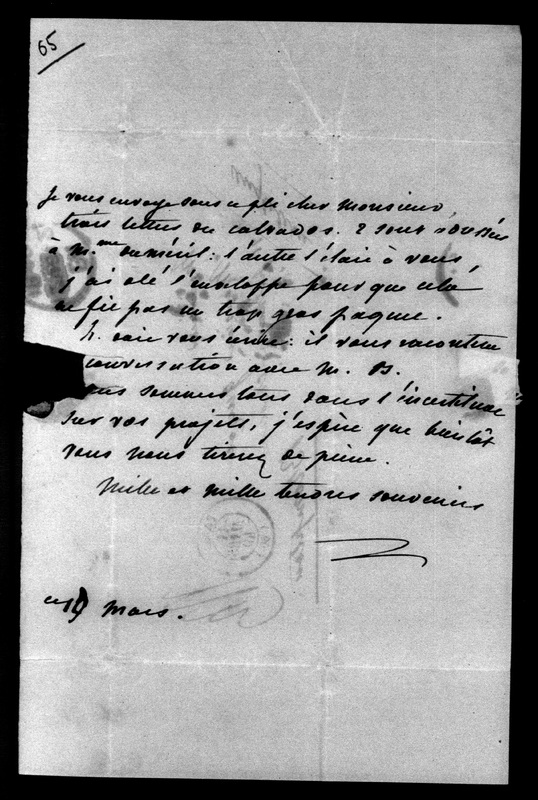 65
Je vous envoye sous ce pli cher monsieur,
trois lettres du calvados. 2 sont
à M.me duméril: l'autre l'était à vous,
j'ai ôté l'enveloppe pour que cela
ne fit pas un trop gros paquet.
vous écrire: il vous racontera
conversation avec M. B.
nous sommes tous dans l'incertitude
sur vos projets, j'espère que bientôt
vous nous tirerez de peine.
Mille et mille tendres souvenirs
ce 19 mars.